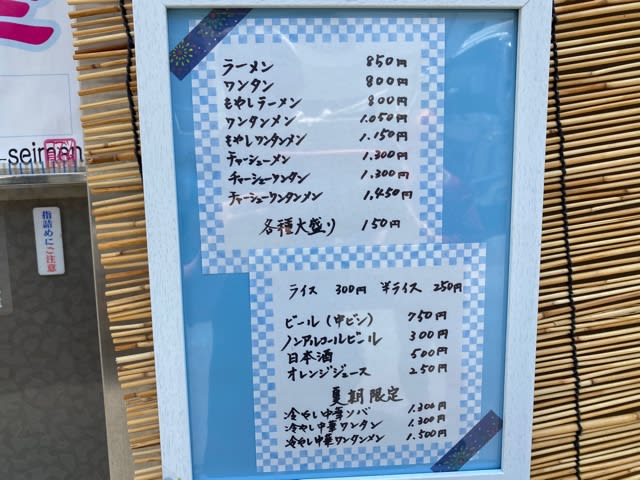 -seimen
指詰めにご注意
ラーメン 850円
ワンタン 800円
もやしラーメン 800円
ワンタンメン 1.050円
もやしワンタンメン 1.150円
チャーシューメン 1.300円
チャーシューワンタン 1.300円
チャーシューワンタンメン 1.450円
各種大盛り 150円
ライス 300円 半ライス 250円
ビール(中ビン) 750円
ノンアルコールビール 300円
日本酒 500円
オレンジジュース 250円
夏期限定
冷やし中華ソバ 1.300円
冷やし中華ワンタン 1.300円
冷やし中華ワンタンメン 1.500円